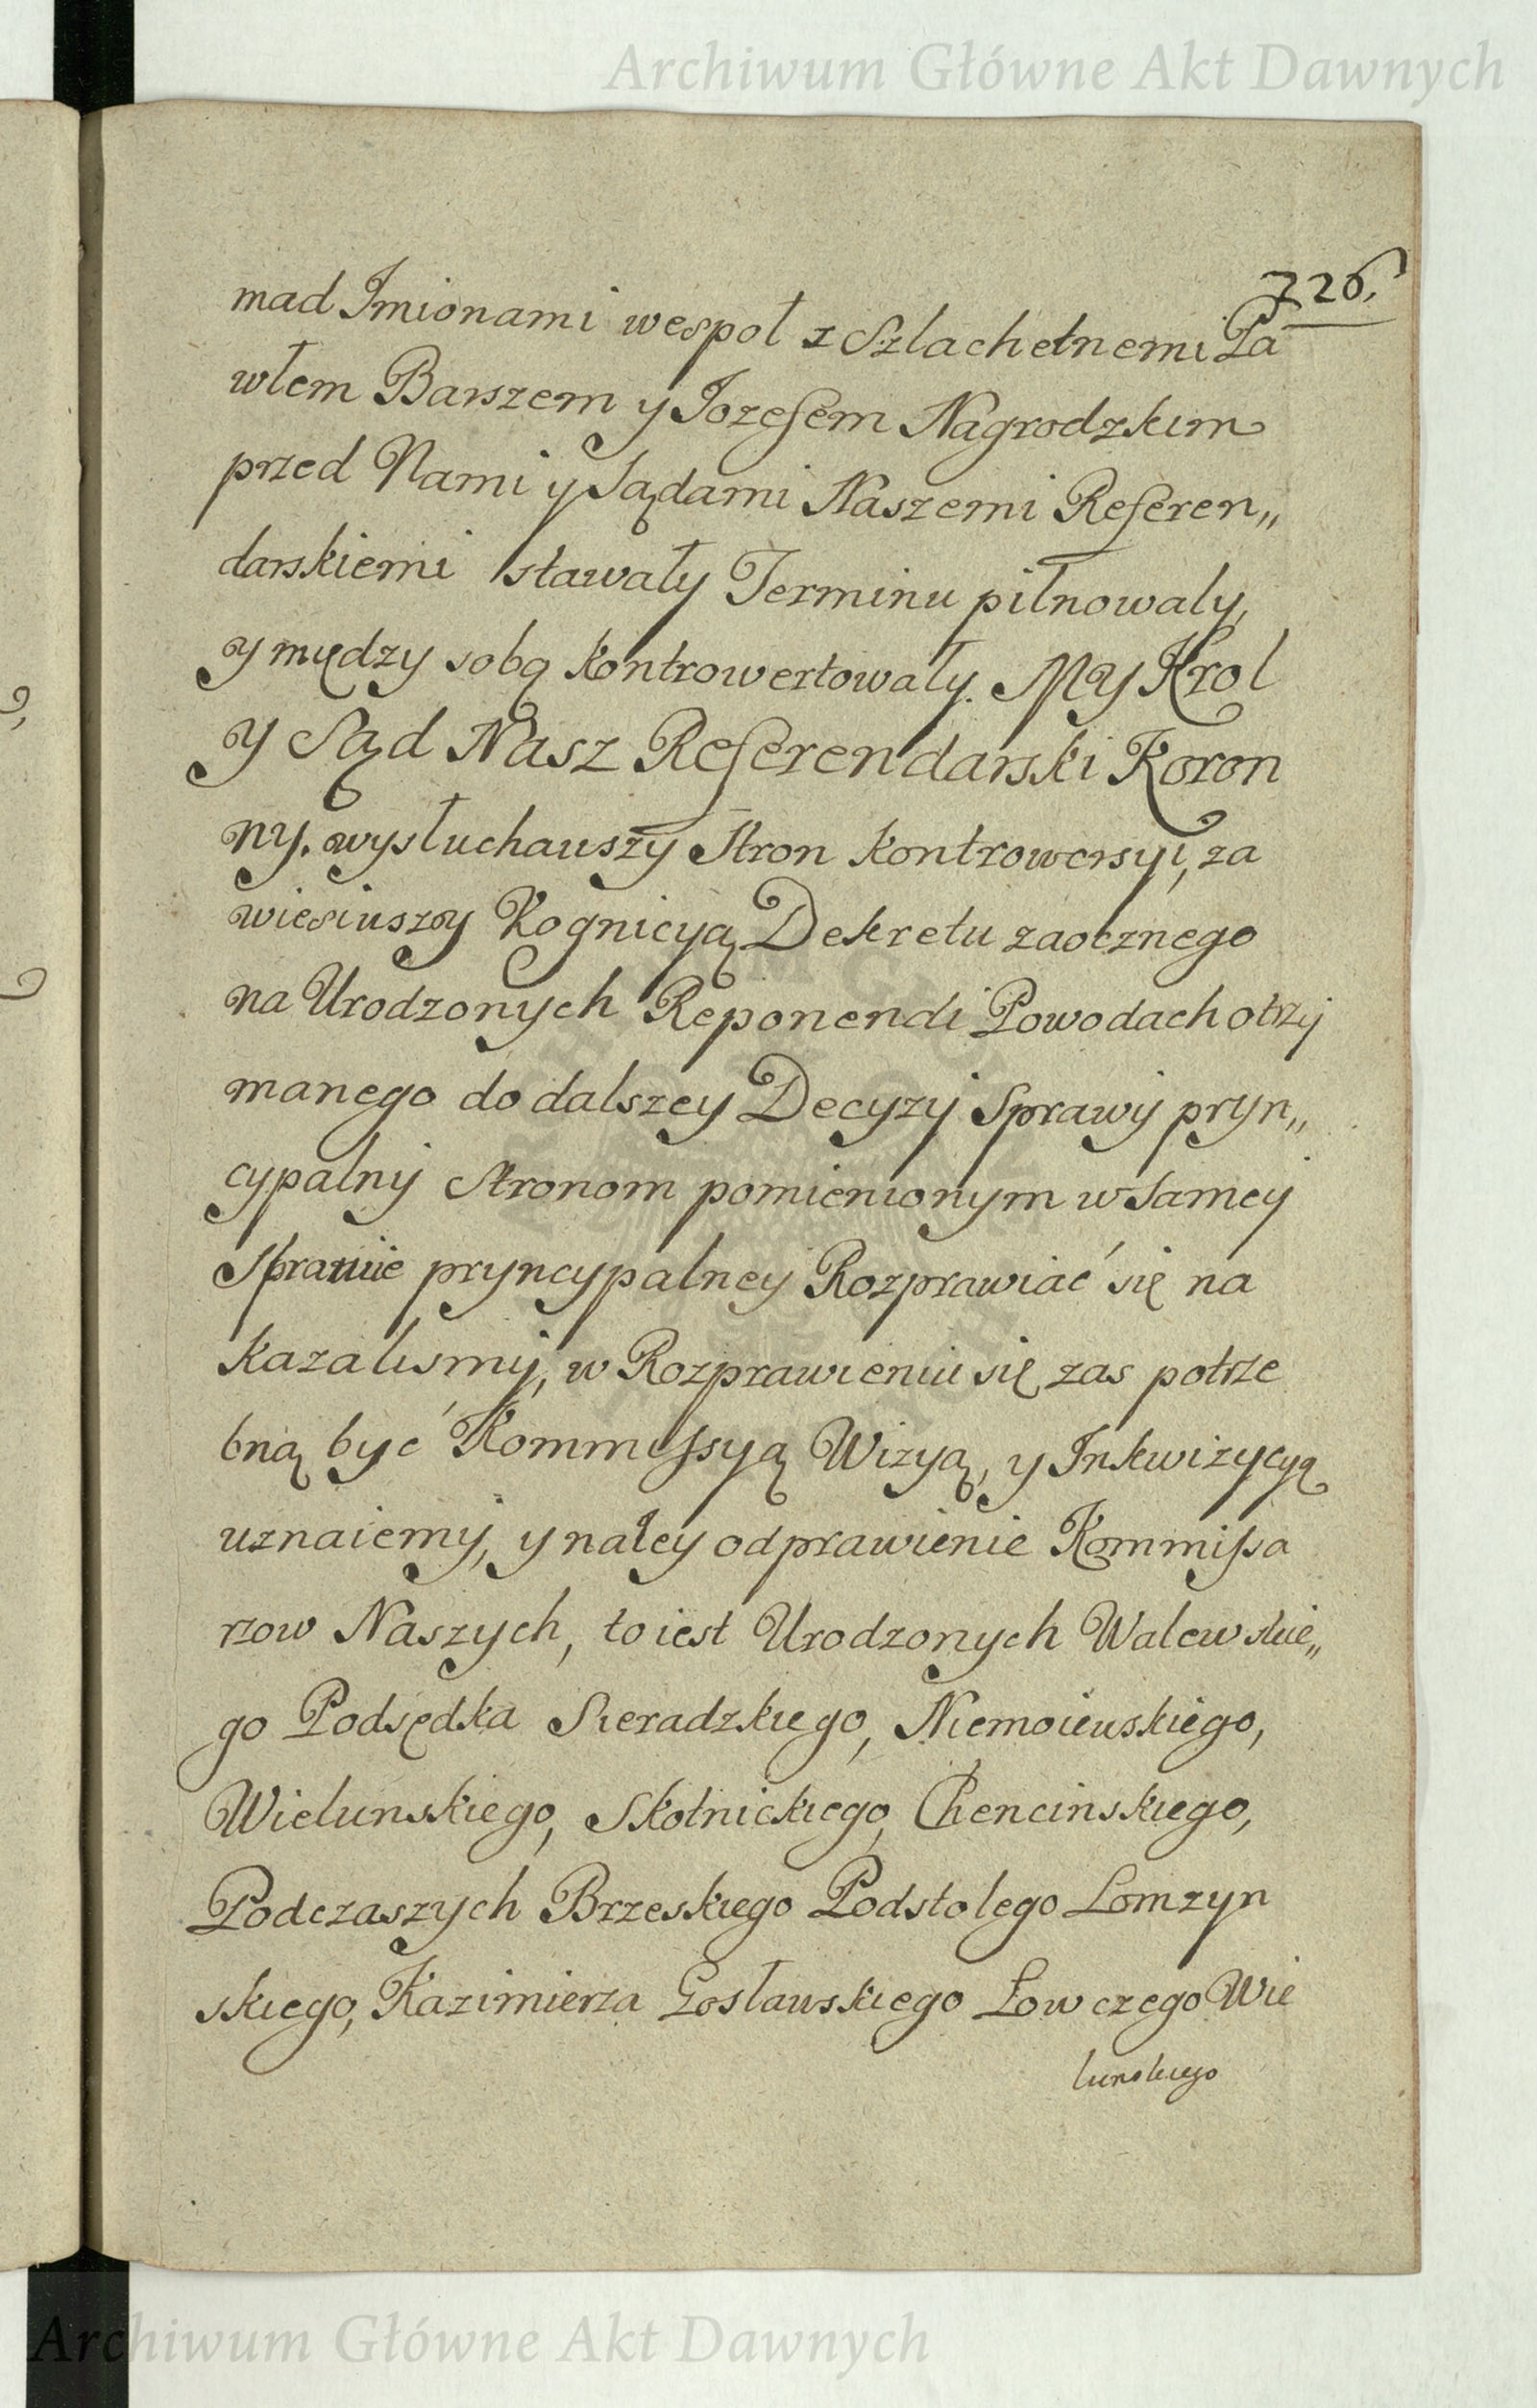 Archiwum Główne Akt Dawnych
726.
mad Imionami wespoł z Szlachetnemi Pa
włem Barszem y Iozefem Nagrodzkim
przed Nami y Sądami Naszemi Referen„
darskiemi stawały Terminu pilnowały,
y między sobą kontrowertowały. My Krol
y Sąd Nasz Referendarski Koron
ny. wysłuchauszy Stron kontrowersyi, za
wiesiuszy Kognicyą Dekretu zaocznego
na Urodzonych Reponendi Powodach otrzy
manego do dalszey Decyzij Sprawy pryn„
cypalnij Stronom pomienionym w samey
Sprawie pryncypalney Rozprawiać się na
kazalismy, w Rozprawieniu się zas potrze
bną być Kommissyą Wizyą, y Inkwizycyą
uznaiemy, y na tey odprawienie Kommissa
rzow Naszych, to iest Urodzonych Walewskie„
go Podsędka Sieradzkiego, Niemoiewskiego,
Wielunskiego, Skotnickiego, Chencinskiego,
Podczaszych Brzeskiego Podstolego Lomzyn
skiego, Kazimierza Gosławskiego Łowczego Wie
lunskiego
Archiwum Główne Akt Dawnych